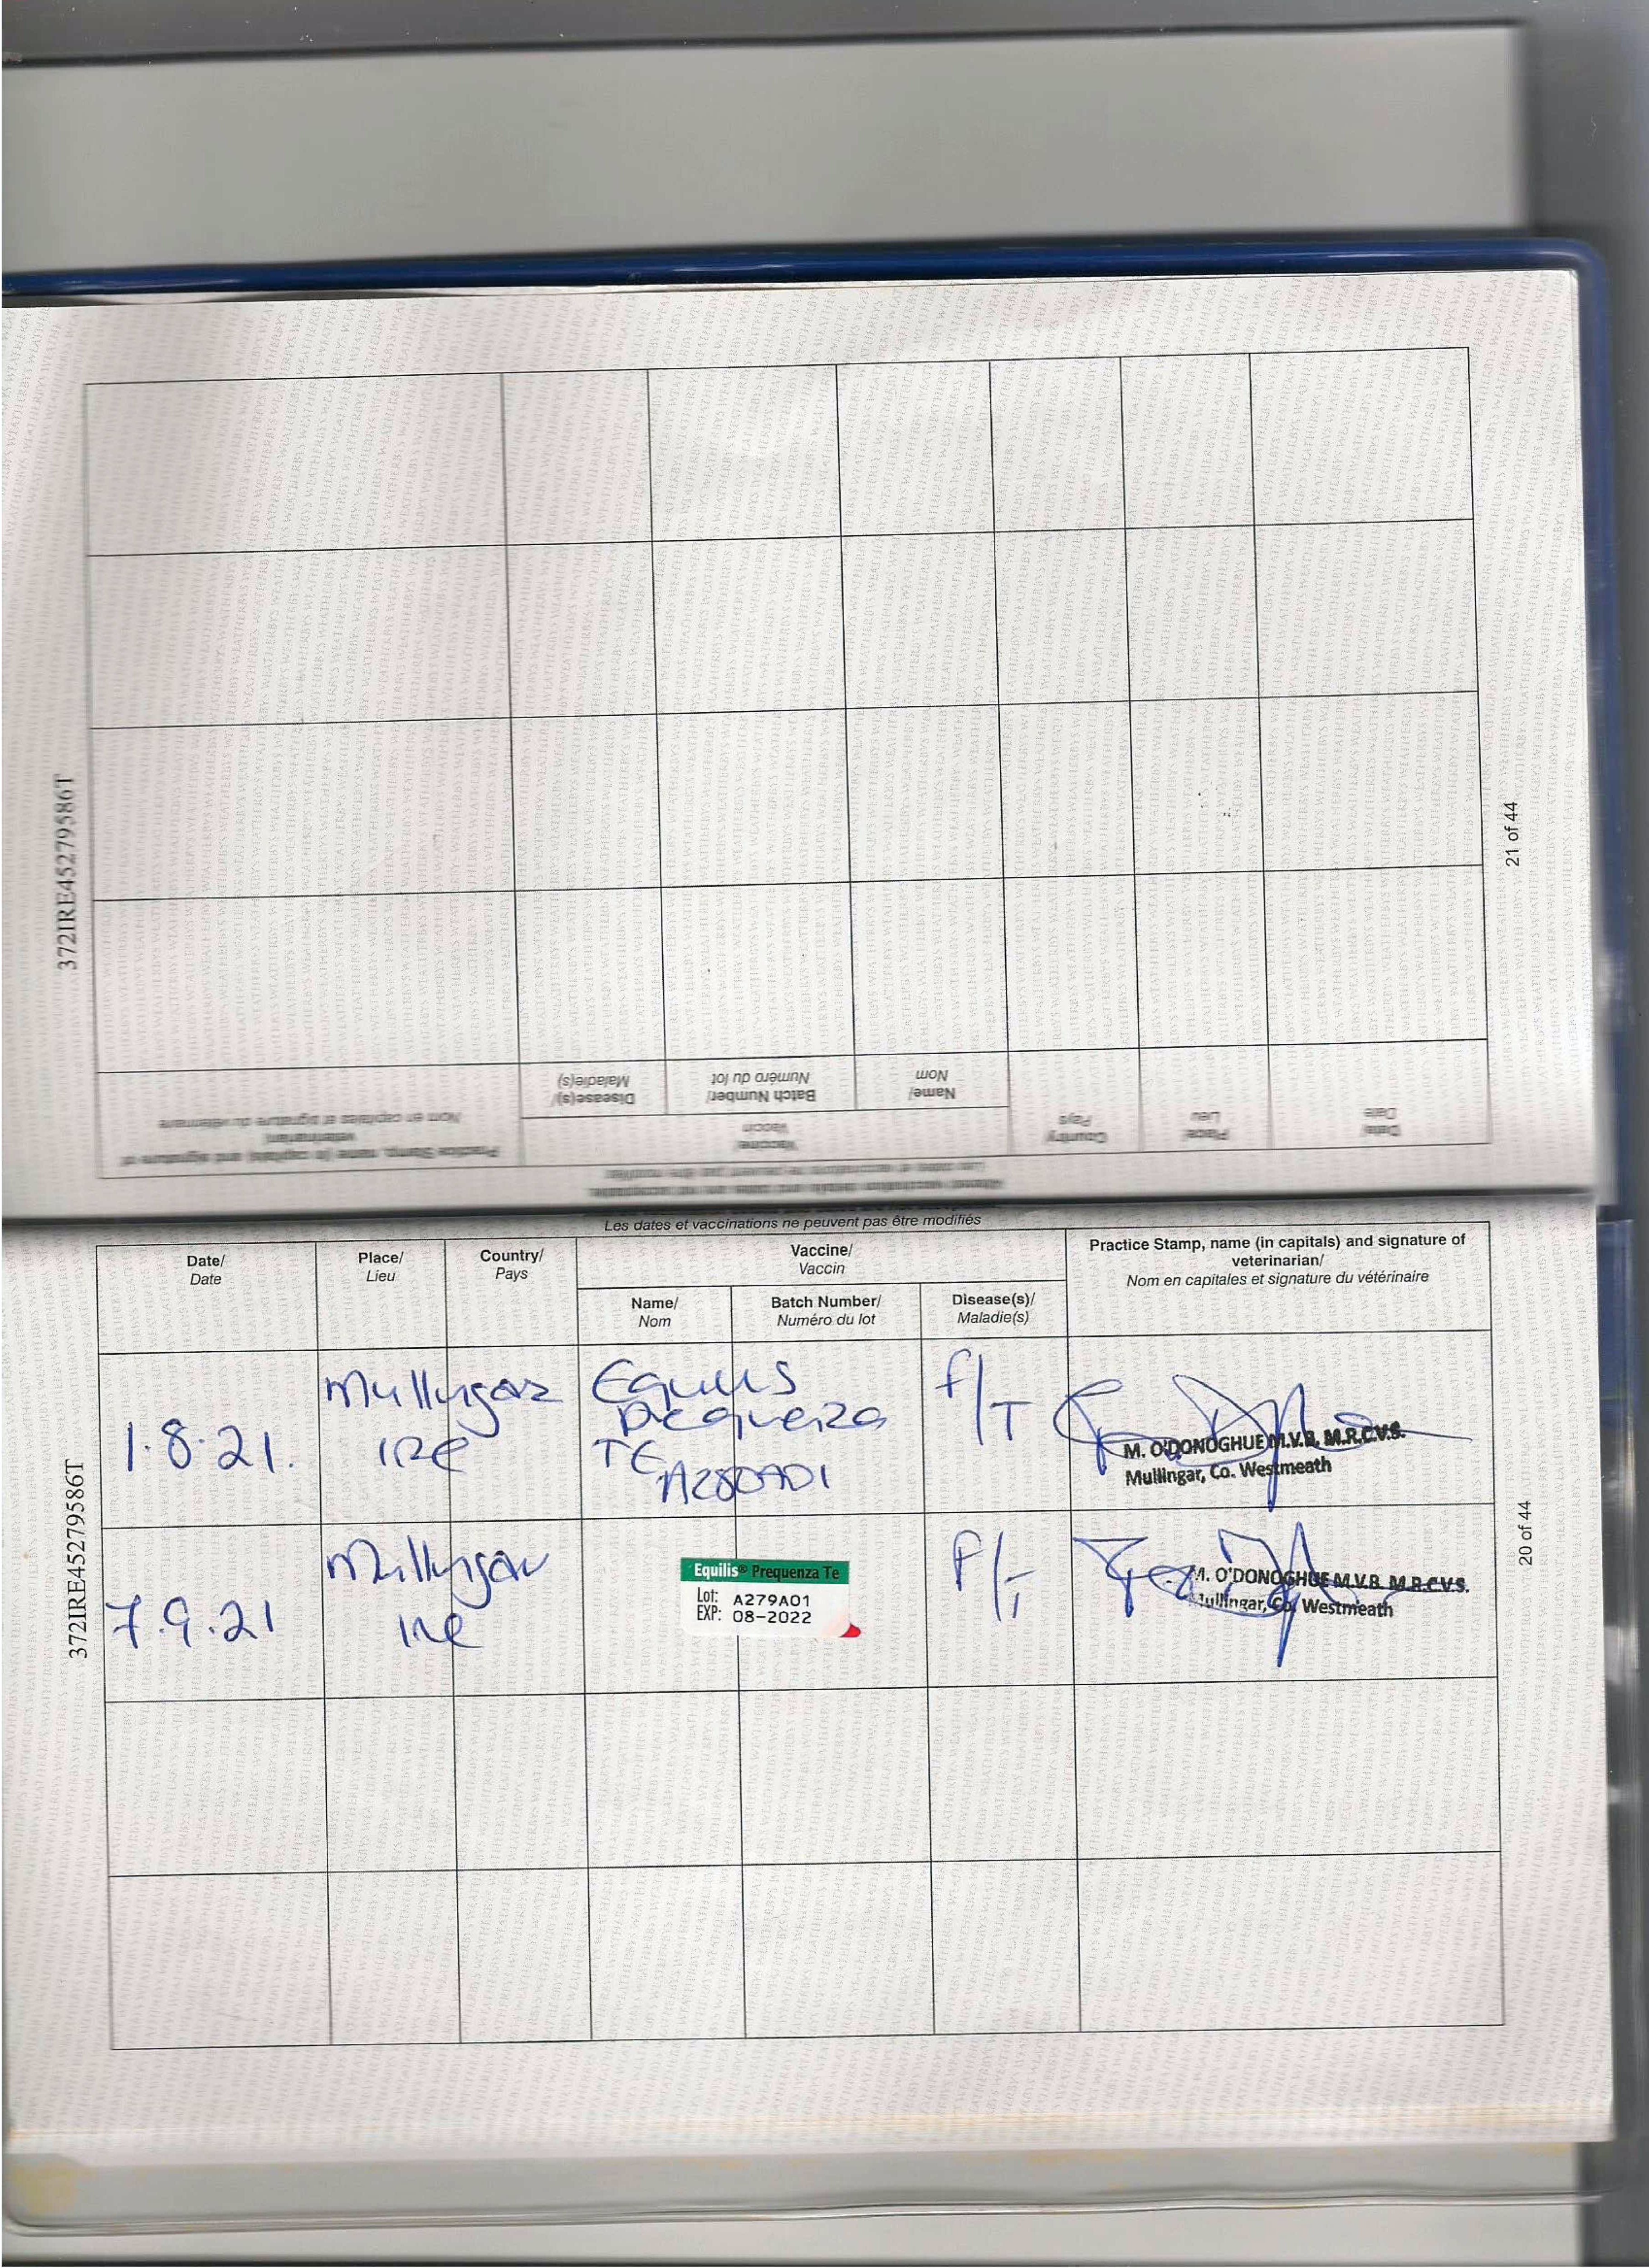 372IRE45279586T
21 of 44
Date/
Date
Place/
Lieu
Country/
Pays
Vaccine/
Vaccin
Name/
Nom
Batch Number/
Numéro du lot
Disease(s)/
Maladie(s)
Practice Stamp, name (in capitals) and signature of
veterinarian/
Nom en capitales et signature du vétérinaire
Altered vaccination details and dates are not acceptable
Les dates et vaccinations ne peuvent pas être modifiés
Les dates et vaccinations ne peuvent pas être modifiés
Date/
Date
Place/
Lieu
Country/
Pays
Vaccine/
Vaccin
Name/
Nom
Batch Number/
Numéro du lot
Disease(s)/
Maladie(s)
Practice Stamp, name (in capitals) and signature of
veterinarian/
Nom en capitales et signature du vétérinaire
1.8.21.
Mullingar
IRE
Equilis
Prequenza
TE
A280A01
F/T
M. O'DONOGHUE M.V.B. M.R.C.V.S.
Mullingar, Co. Westmeath
7.9.21
Mullingar
IRE
Equilis® Prequenza Te
Lot: A279A01
EXP: 08-2022
F/T
M. O'DONOGHUE M.V.B. M.R.C.V.S.
Mullingar, Co. Westmeath
372IRE45279586T
20 of 44